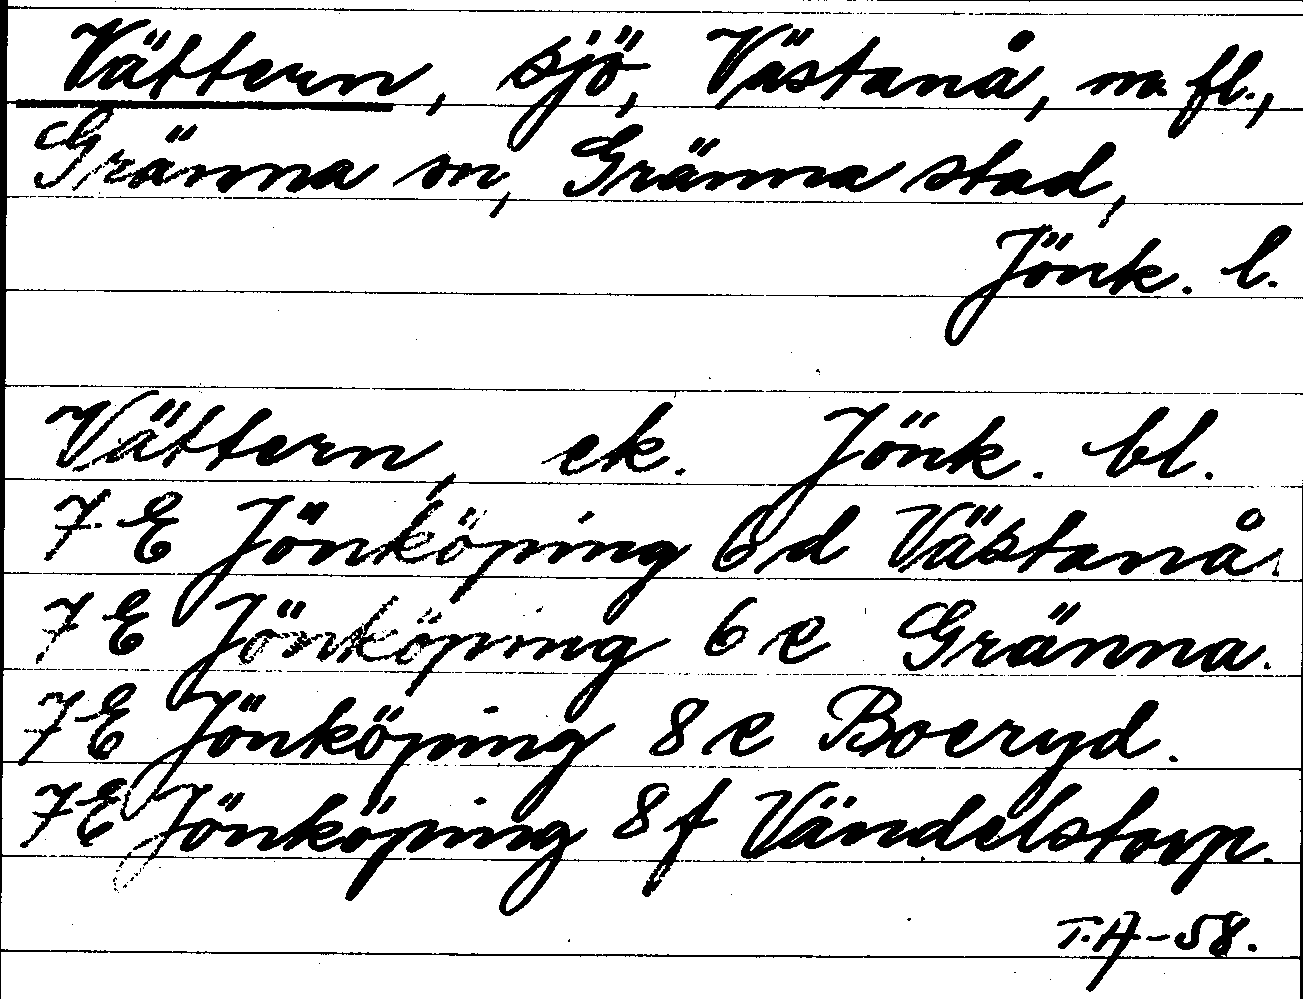 Vättern, sjö, Västanå, m. fl.,
Gränna sn, Gränna stad,
Jönk. l.
Vättern, ek. Jönk. bl.
7 E Jönköping 6 d Västanå.
7 E Jönköping 6 e Gränna.
7 E Jönköping 8 e Boeryd.
7 E Jönköping 8 f Vändelstorp.
T.A-58.